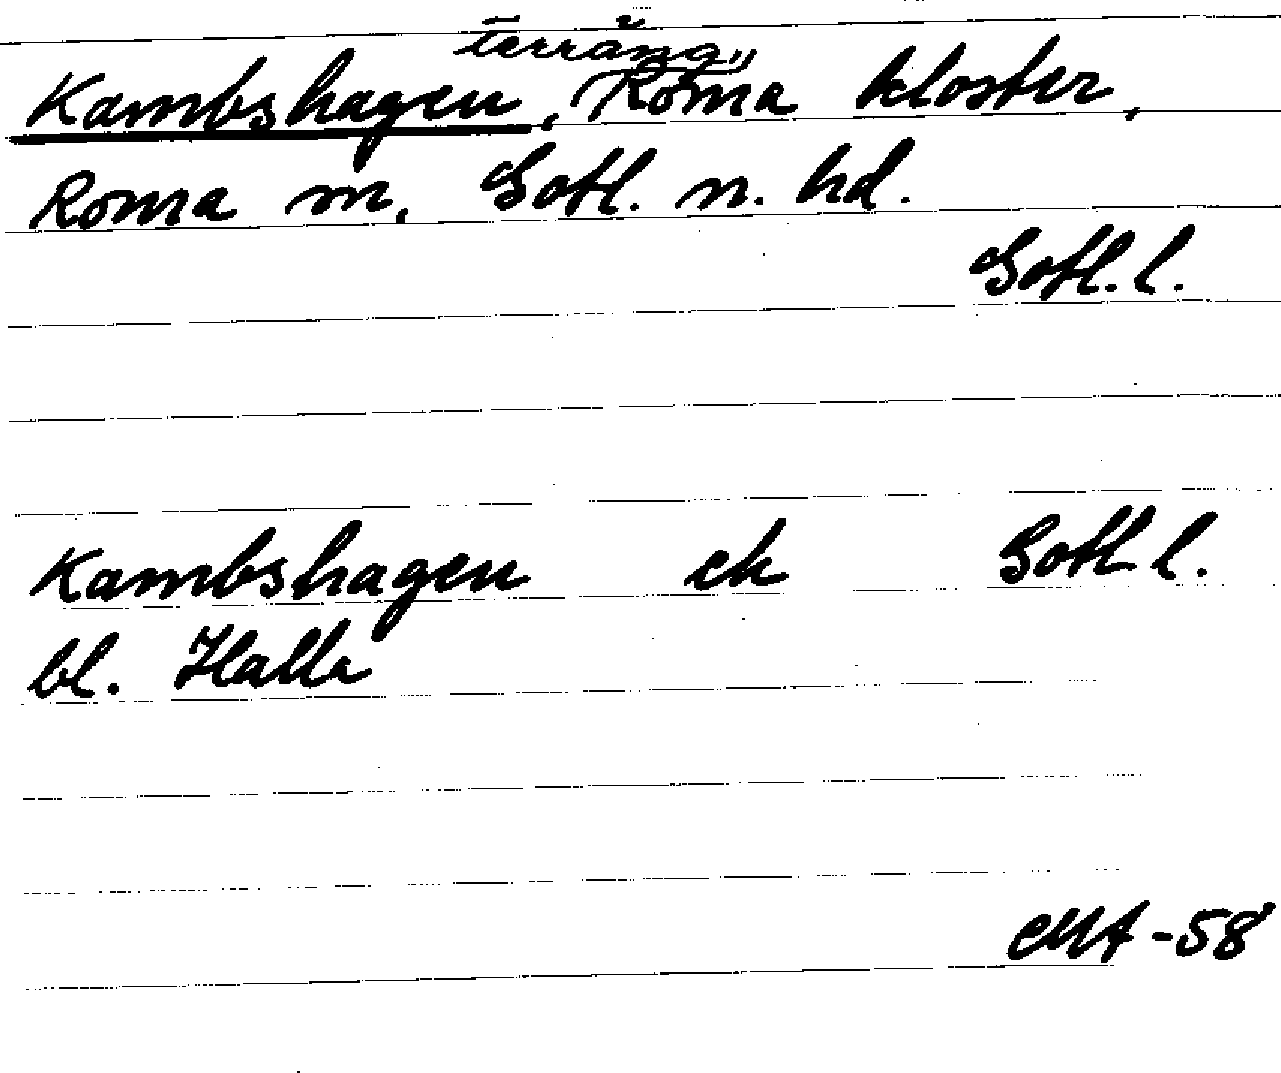 terräng"
Kambshagen, Roma kloster,
Roma sn, Gotl. n. hd.
Gotl. l.
Kambshagen ek Gotl l.
bl. Halla
MA-58